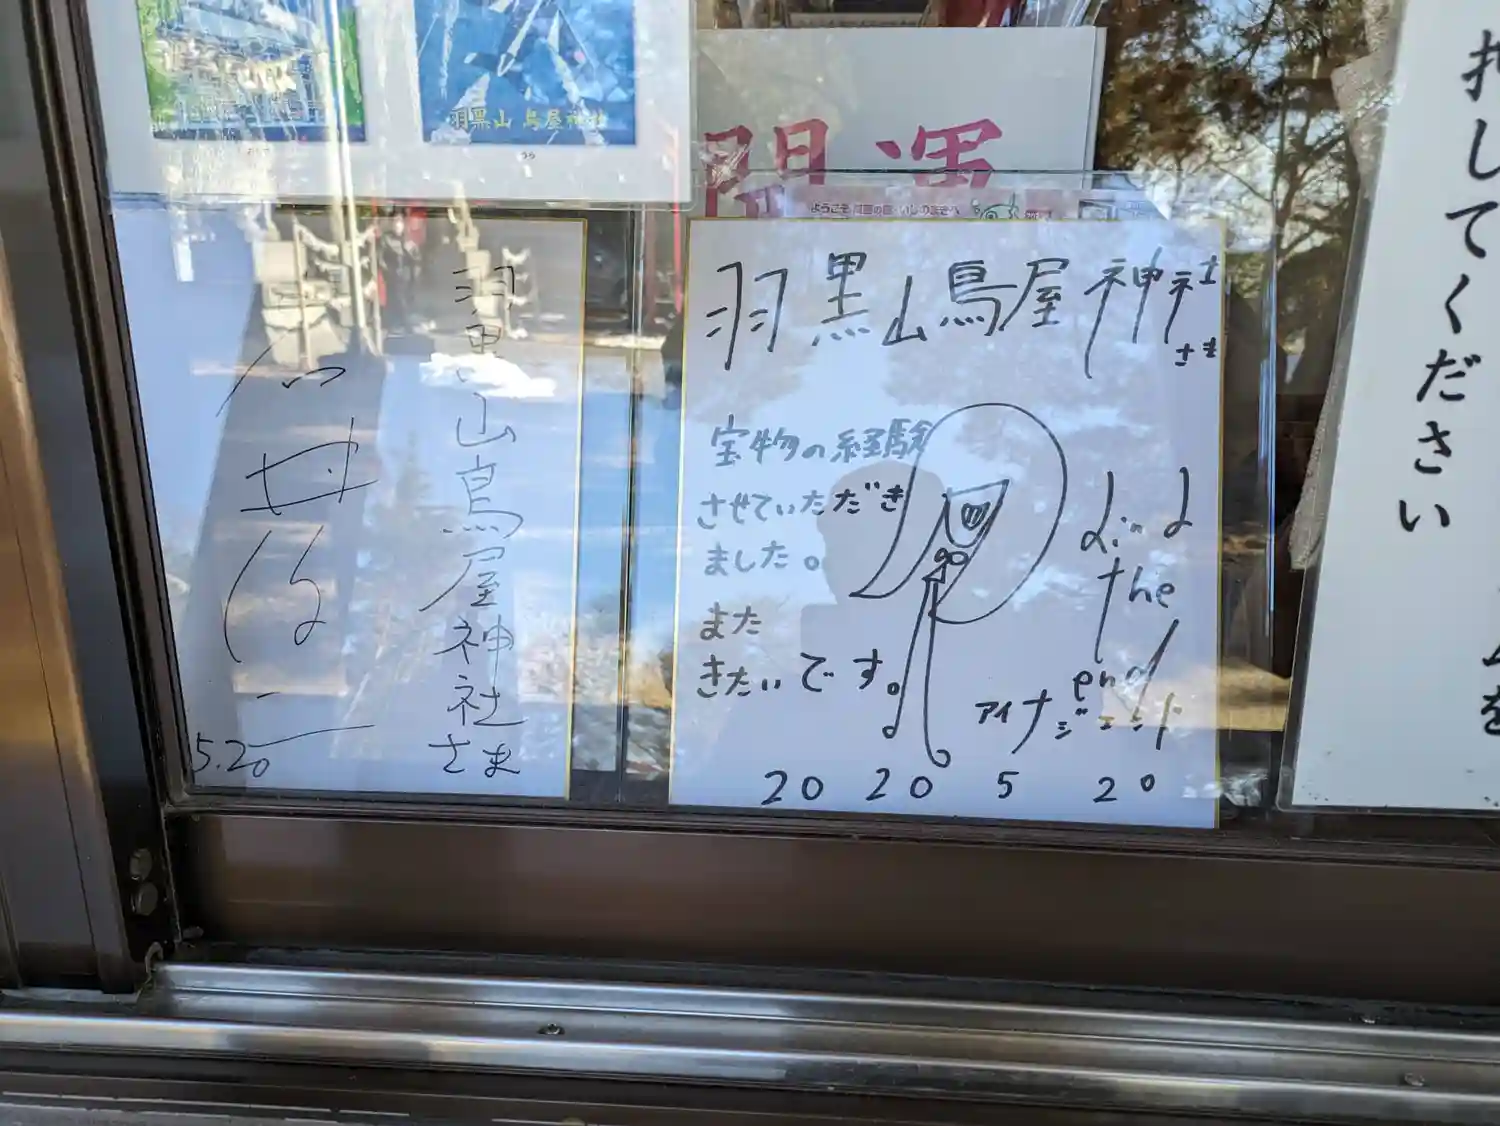 羽黒山 鳥屋神社
うら
開運
ようこそ
羽黒山鳥屋神社
さま
宝物の経験
させていただき
ました。
また
きたいです。
and
the
end
アイナジエンド
2020 5 20
羽黒山鳥屋神社さま
5.20
押してください
を